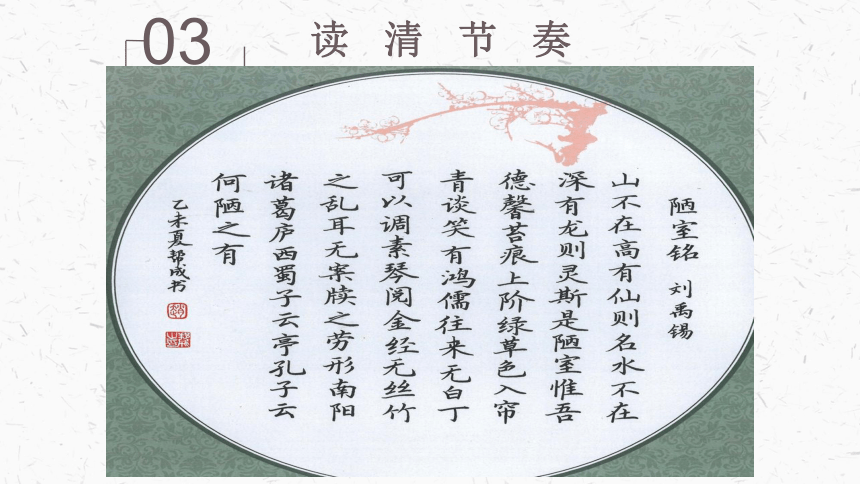 03
读清节奏
陋室铭 刘禹锡
山不在高有仙则名水不在
深有龙则灵斯是陋室惟吾
德馨苔痕上阶绿草色入帘
青谈笑有鸿儒往来无白丁
可以调素琴阅金经无丝竹
之乱耳无案牍之劳形南阳
诸葛庐西蜀子云亭孔子云
何陋之有
乙未夏帮成书